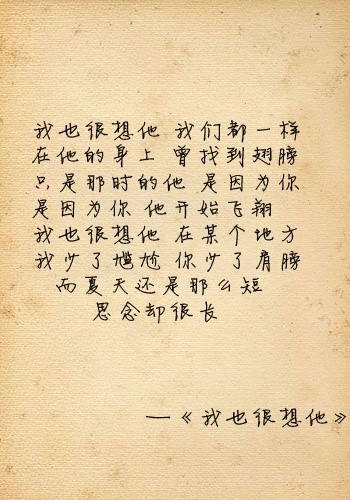 我也很想他 我们都一样
在他的身上 曾找到翅膀
只是那时的他 是因为你
是因为你 他开始飞翔
我也很想他 在某个地方
我少了尴尬 你少了肩膀
而夏天还是那么短
思念却很长
—《我也很想他》